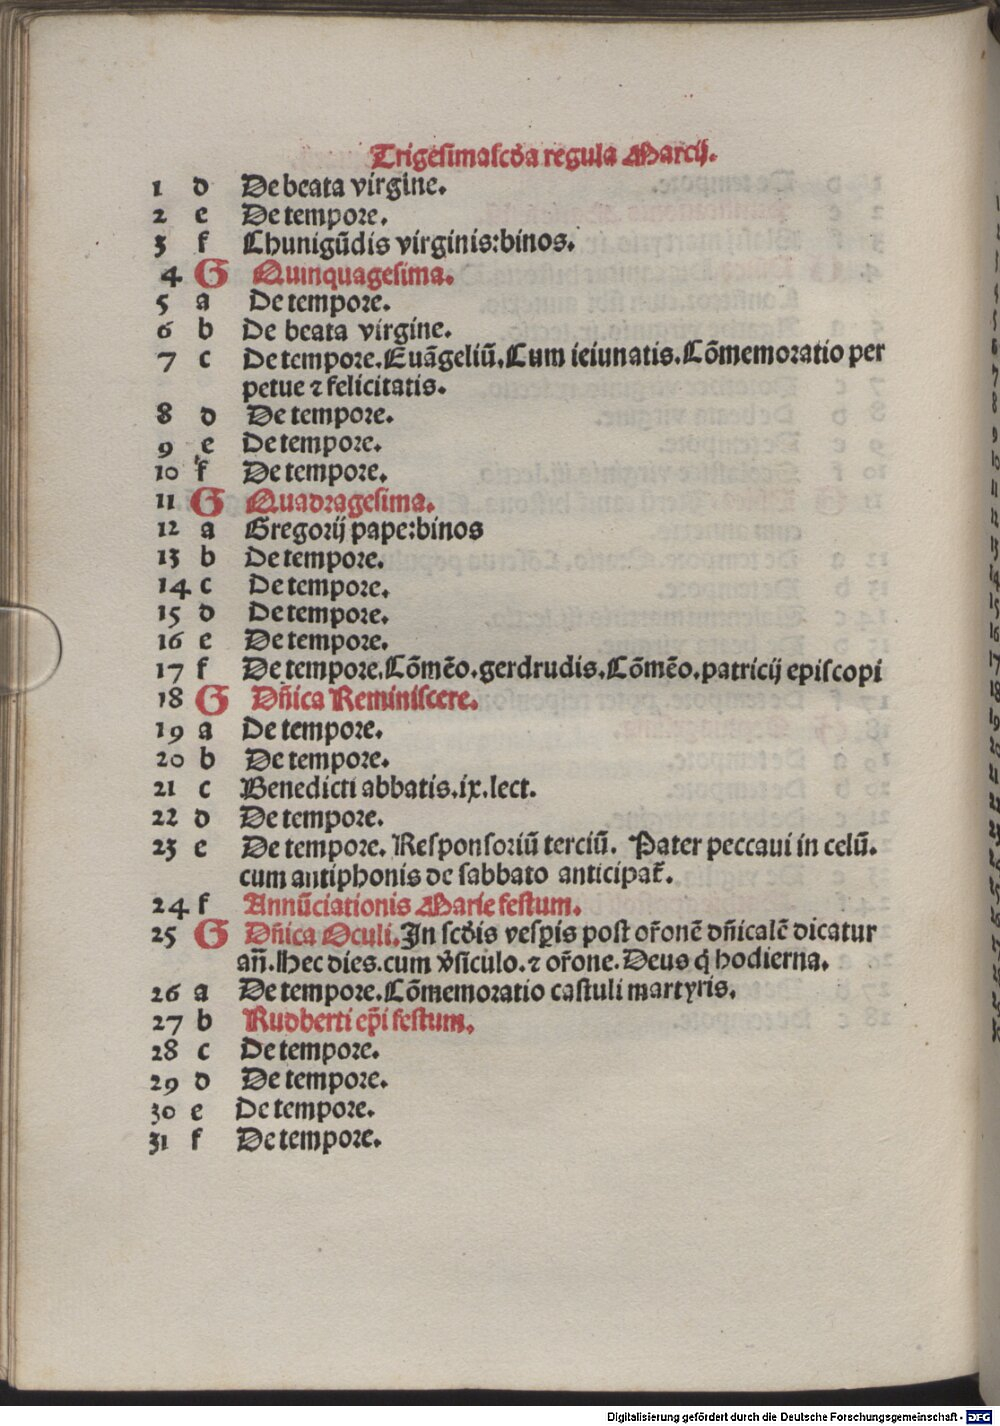 Trigesimascđa regula Marcij.
1 d De beata virgine.
2 e De tempore.
3 f Chunigūdis virginis:binos.
4 G Quinquagesima.
5 a De tempore.
6 b De beata virgine.
7 c De tempore. Euāgeliū. Cum ieiunatis. Cōmemoratio per
petue ⁊ felicitatis.
8 d De tempore.
9 e De tempore.
10 f De tempore.
11 G Quadragesima.
12 a Gregorij pape:binos
13 b De tempore.
14 c De tempore.
15 d De tempore.
16 e De tempore.
17 f De tempore. Cōmēo. gerdrudis. Cōmēo. patricij episcopi
18 G Dn̄ica Reminiscere.
19 a De tempore.
20 b De tempore.
21 c Benedicti abbatis. ix. lect.
22 d De tempore.
23 e De tempore. Responsoriū terciū. Pater peccaui in celū.
cum antiphonis de sabbato anticipat̄.
24 f Annūciationis Marie festum.
25 G Dn̄ica Oculi. In scđis vesꝑis post or̄onē dn̄icalē dicatur
an̄. Hec dies. cum v̄siculo. ⁊ or̄one. Deus q̄ hodierna.
26 a De tempore. Cōmemoratio castuli martyris.
27 b Rudberti ep̄i festum.
28 c De tempore.
29 d De tempore.
30 e De tempore.
31 f De tempore.
Digitalisierung gefördert durch die Deutsche Forschungsgemeinschaft - DFG